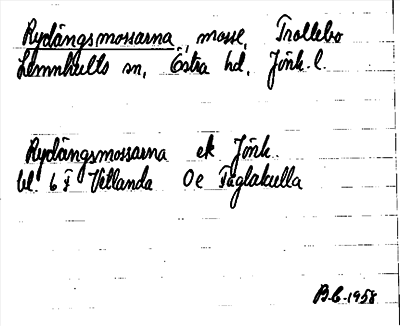 Rydängsmossarna, mosse, Trollebo
Lemnhults sn, Östra hd, Jönk. l.
Rydängsmossarna ek Jönk.
bl. 6 F Vetlanda 0e Fäglakulla
B.C. 1958